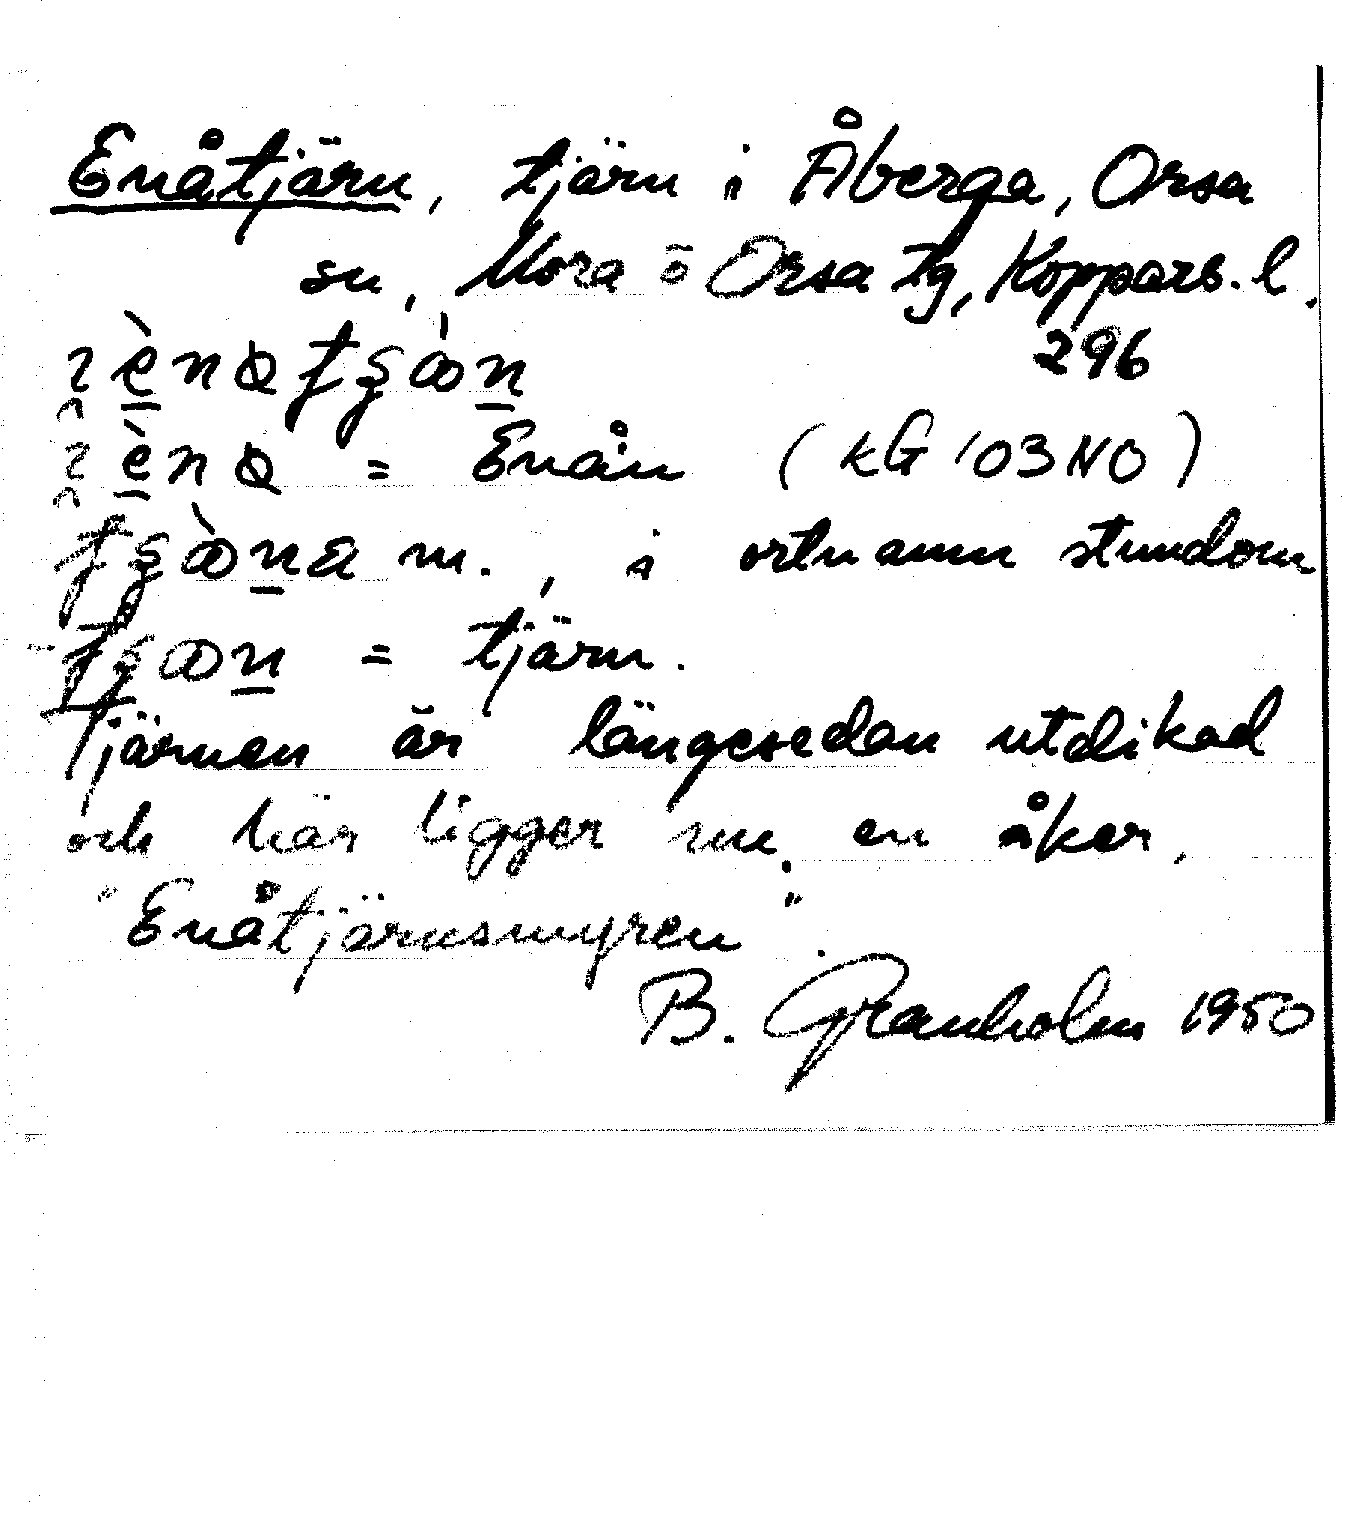 Enåtjärn, tjärn i Åberga, Orsa
sn, Mora o Orsa tg, Koppars. l.
296
= Enån (KG 103 NO)
m., i ortnamn stundom
= tjärn.
Tjärnen är längesedan utdikad
och här ligger nu en åker,
"Enåtjärnsmyren".
B. Granholm 1950